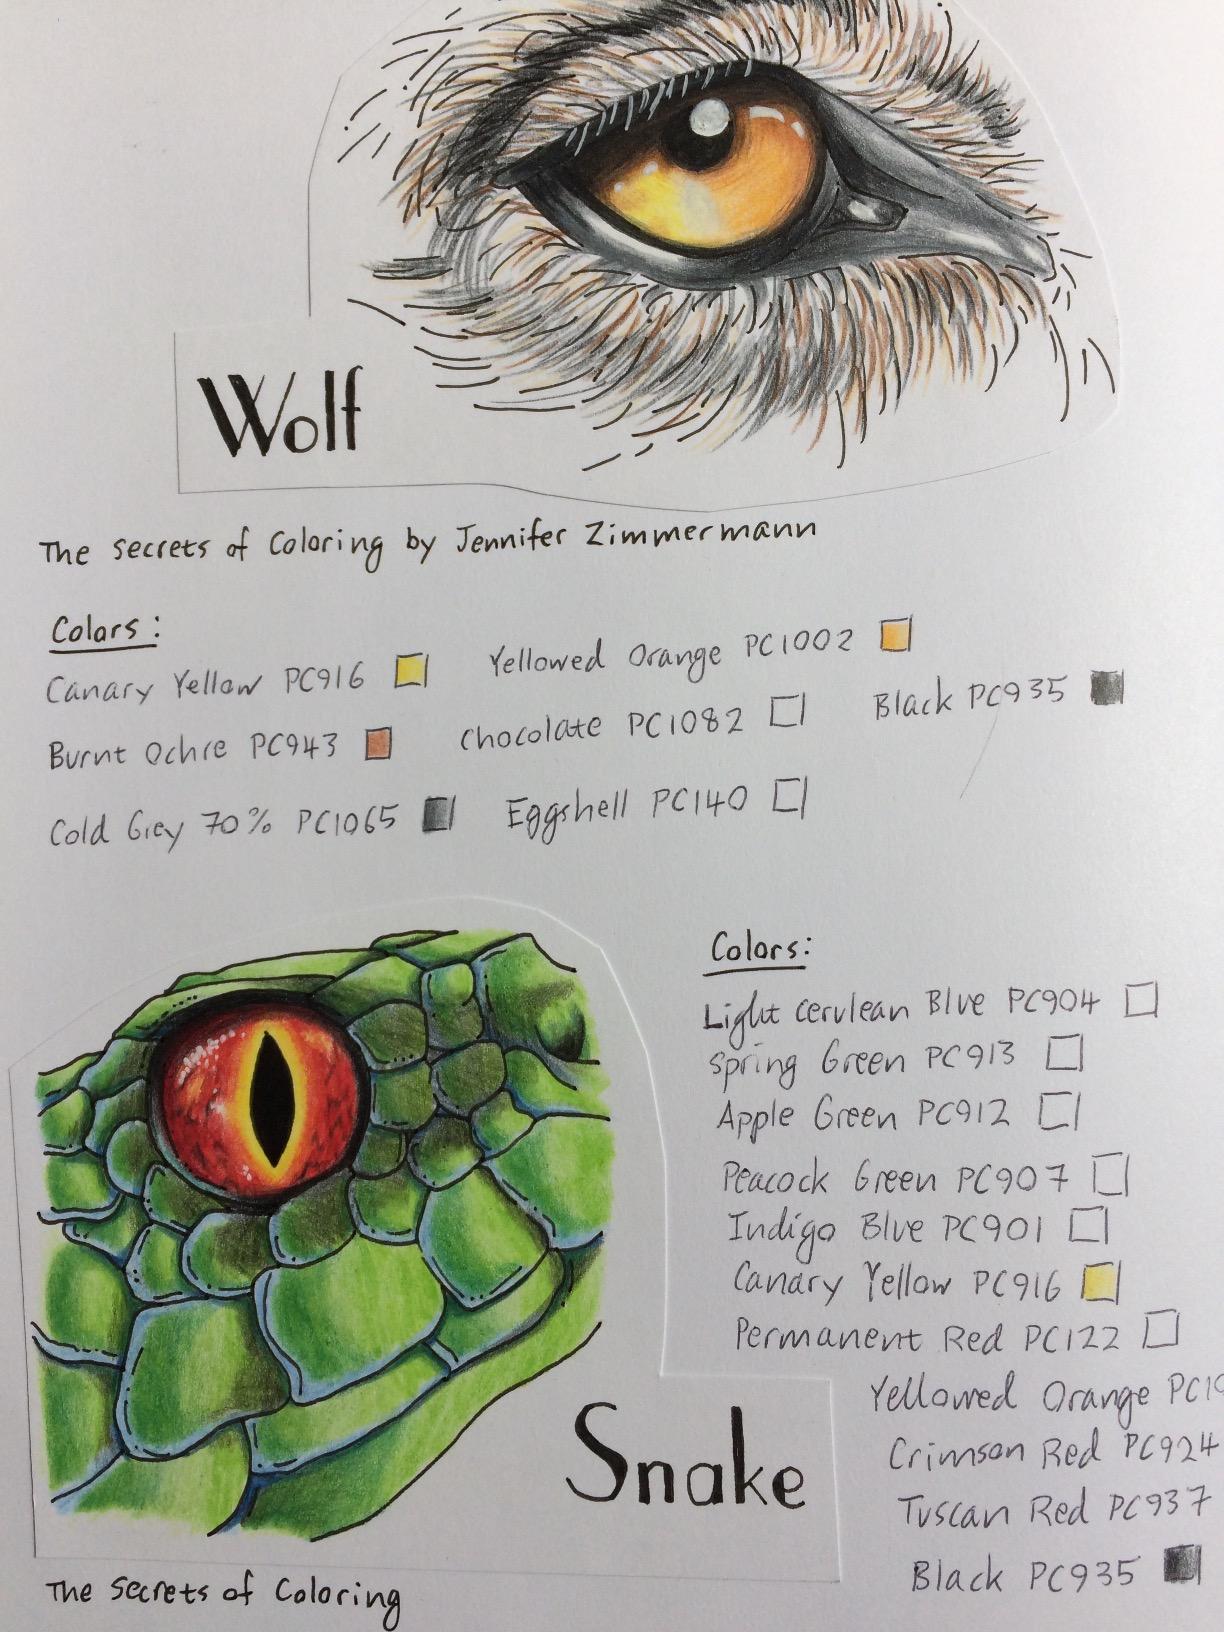 Wolf
The Secrets of Coloring by Jennifer Zimmermann
Colors:
Canary Yellow PC916 Yellowed Orange PC1002
Burnt Ochre PC943 Chocolate PC1082 Black PC935
Cold Grey 70% PC1065 Eggshell PC140
Colors:
Light Cerulean Blue PC904
Spring Green PC913
Apple Green PC912
Peacock Green PC907
Indigo Blue PC901
Canary Yellow PC916
Permanent Red PC122
Yellowed Orange
Crimson Red PC924
Tuscan Red PC937
Black PC935
Snake
The Secrets of Coloring